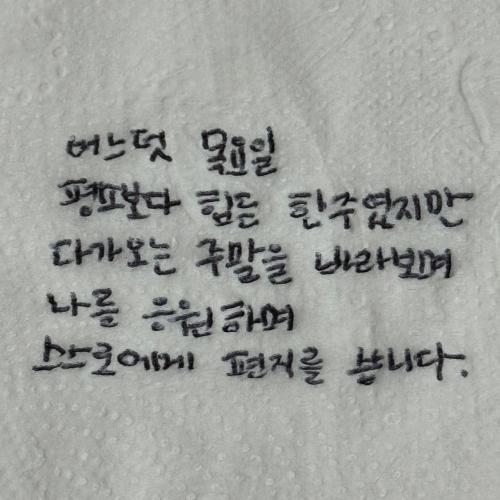 어느덧 목요일
평포보다 힘든 한주였지만
다가오는 주말을 바라보며
나를 응원하며
스스로에게 편지를 씁니다.